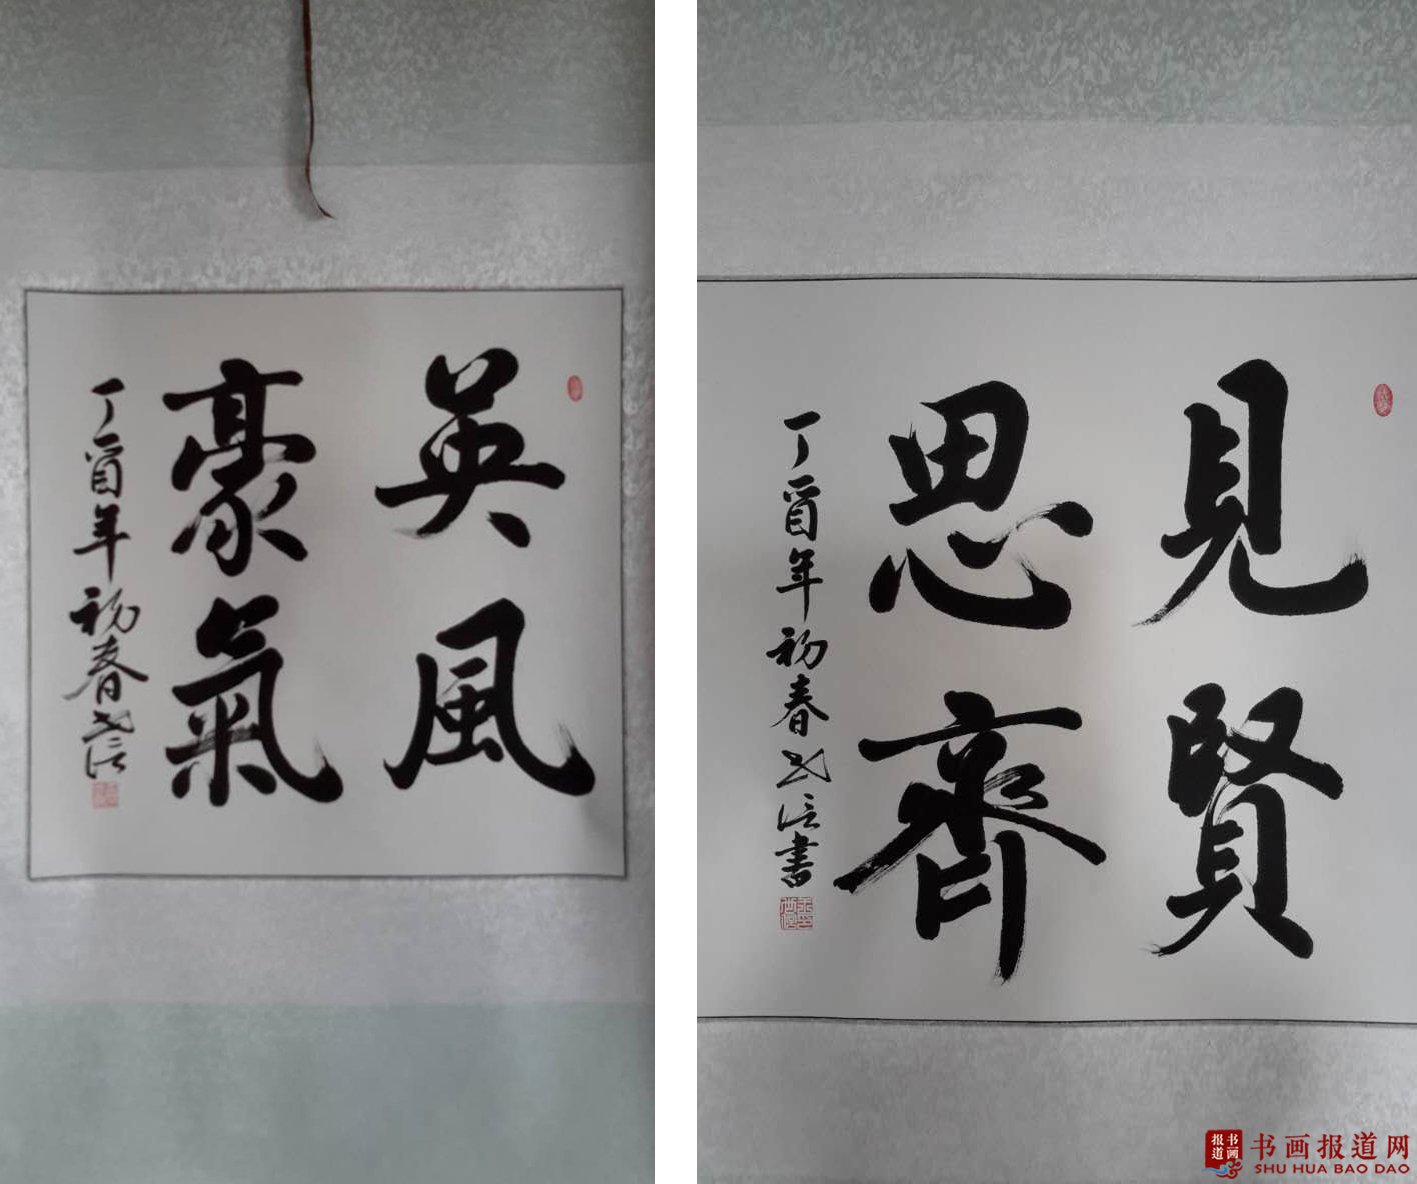 英風
豪氣
丁酉年初春
見賢
思齊
丁酉年初春
書
书画报道
书画报道网
SHU HUA BAO DAO